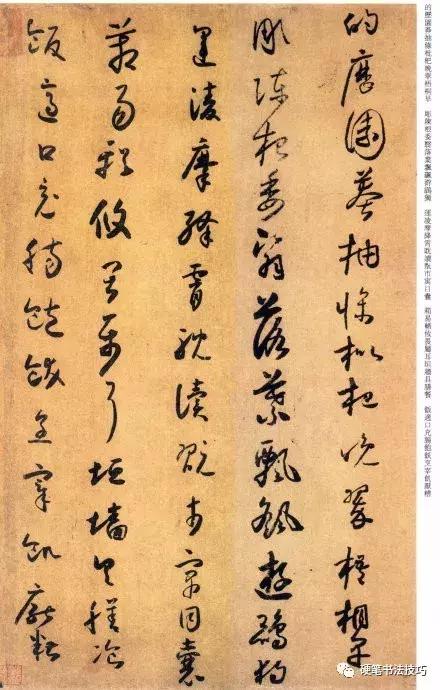 的歷園莽抽條枇杷晚翠梧桐早　彫陳根委翳落葉飄颻游鵾獨　運凌摩絳霄耽讀翫市寓目囊　箱易輶攸畏屬耳垣牆具膳餐　飯適口充腸飽飫烹宰飢厭糟
的歷園莽抽條枇杷晚翠梧桐早
彫陳根委翳落葉飄颻遊鵾獨
運凌摩絳霄耽讀翫市寓目囊
箱易輶攸畏屬耳垣墻具膳飡
飯適口充腸飽飫烹宰飢厭糟
硬笔书法技巧